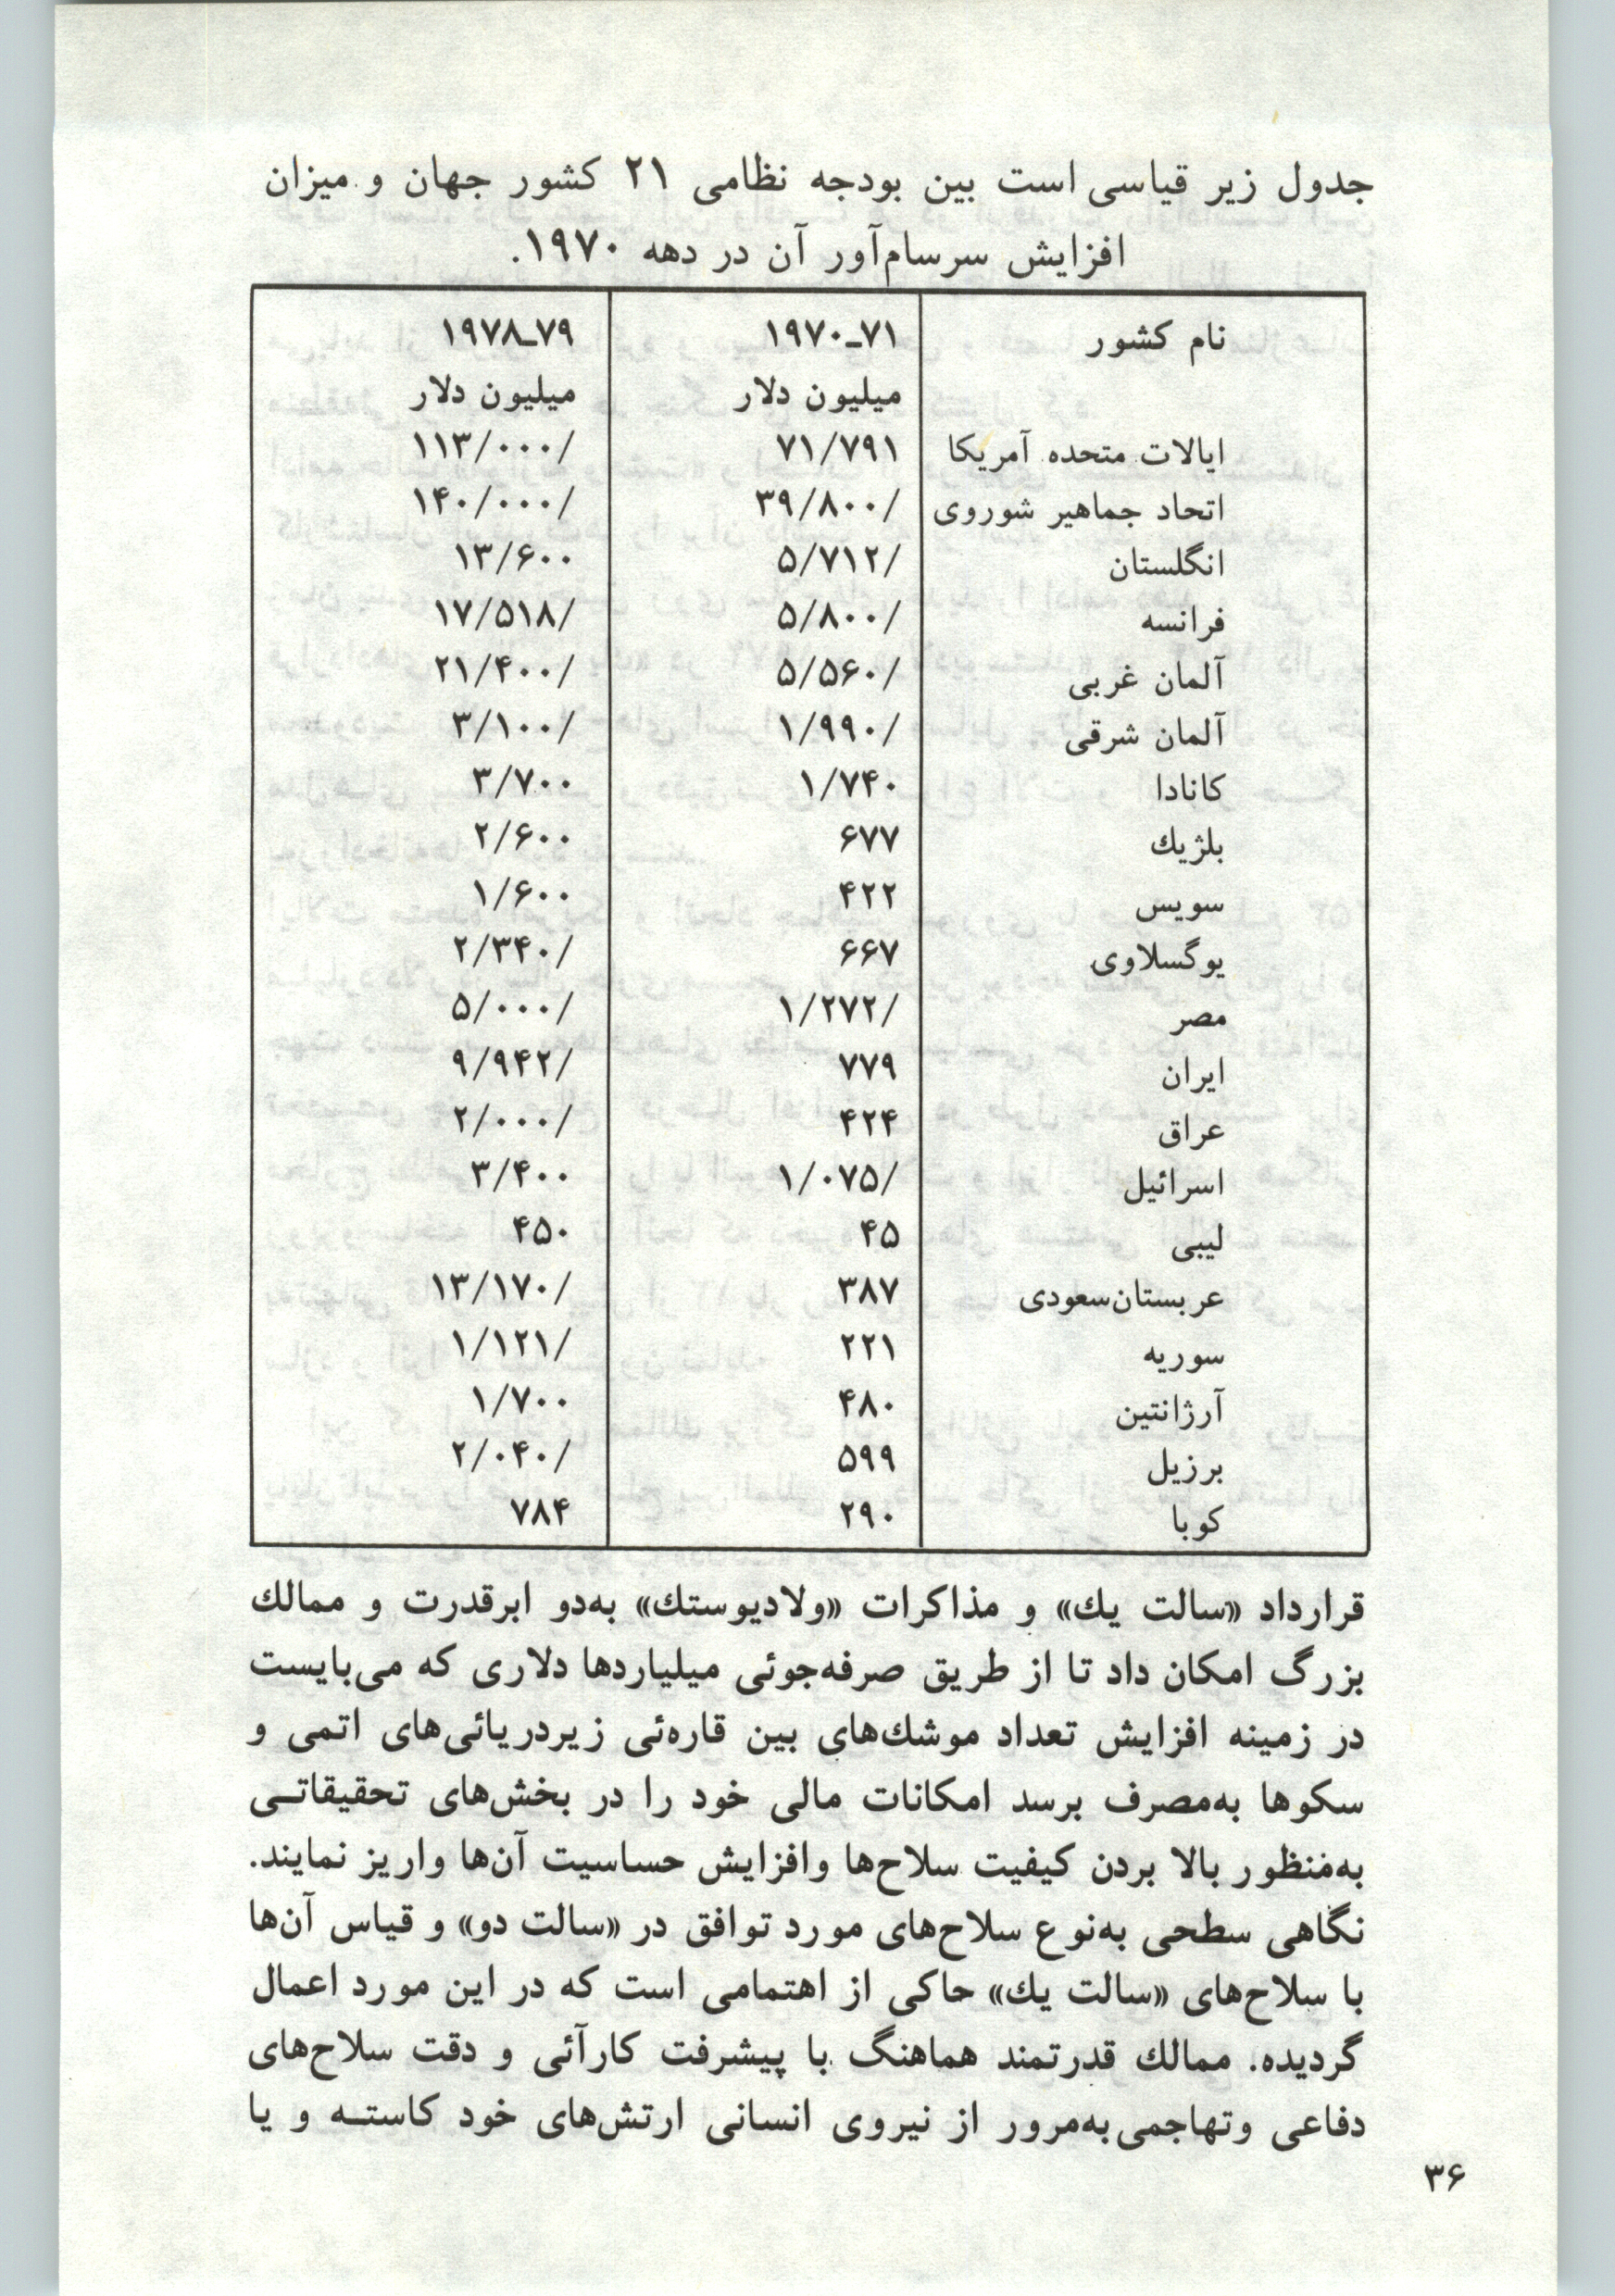 جدول زیر قیاسی است بین بودجه نظامی ۲۱ کشور جهان و میزان
افزایش سرسام‌آور آن در دهه ۱۹۷۰.
نام کشور ۱۹۷۰ـ۷۱ ۱۹۷۸ـ۷۹
میلیون دلار میلیون دلار
ایالات متحده آمریکا ۷۱/۷۹۱ ۱۱۳/۰۰۰/
اتحاد جماهیر شوروی ۳۹/۸۰۰/ ۱۴۰/۰۰۰/
انگلستان ۵/۷۱۲/ ۱۳/۶۰۰
فرانسه ۵/۸۰۰/ ۱۷/۵۱۸/
آلمان غربی ۵/۵۶۰/ ۲۱/۴۰۰/
آلمان شرقی ۱/۹۹۰/ ۳/۱۰۰/
کانادا ۱/۷۴۰ ۳/۷۰۰
بلژیك ۶۷۷ ۲/۶۰۰
سویس ۴۲۲ ۱/۶۰۰
یوگسلاوی ۶۶۷ ۲/۳۴۰/
مصر ۱/۲۷۲/ ۵/۰۰۰/
ایران ۷۷۹ ۹/۹۴۲/
عراق ۴۲۴ ۲/۰۰۰/
اسرائیل ۱/۰۷۵/ ۳/۴۰۰
لیبی ۴۵ ۴۵۰
عربستان‌سعودی ۳۸۷ ۱۳/۱۷۰/
سوریه ۲۲۱ ۱/۱۲۱/
آرژانتین ۴۸۰ ۱/۷۰۰
برزیل ۵۹۹ ۲/۰۴۰/
کوبا ۲۹۰ ۷۸۴
قرارداد «سالت یك» و مذاکرات «ولادیوستك» به‌دو ابرقدرت و ممالك
بزرگ امکان داد تا از طریق صرفه‌جوئی میلیاردها دلاری که می‌بایست
در زمینه افزایش تعداد موشك‌های بین قاره‌ئی زیردریائی‌های اتمی و
سکوها به‌مصرف برسد امکانات مالی خود را در بخش‌های تحقیقاتـی
به‌منظور بالا بردن کیفیت سلاح‌ها وافزایش حساسیت آن‌ها واریز نمایند.
نگاهی سطحی به‌نوع سلاح‌های مورد توافق در «سالت دو» و قیاس آن‌ها
با سلاح‌های «سالت یك» حاکی از اهتمامی است که در این مورد اعمال
گردیده. ممالك قدرتمند هماهنگ با پیشرفت کارآئی و دقت سلاح‌های
دفاعی وتهاجمی به‌مرور از نیروی انسانی ارتش‌های خود کاستـه و یا
۳۶